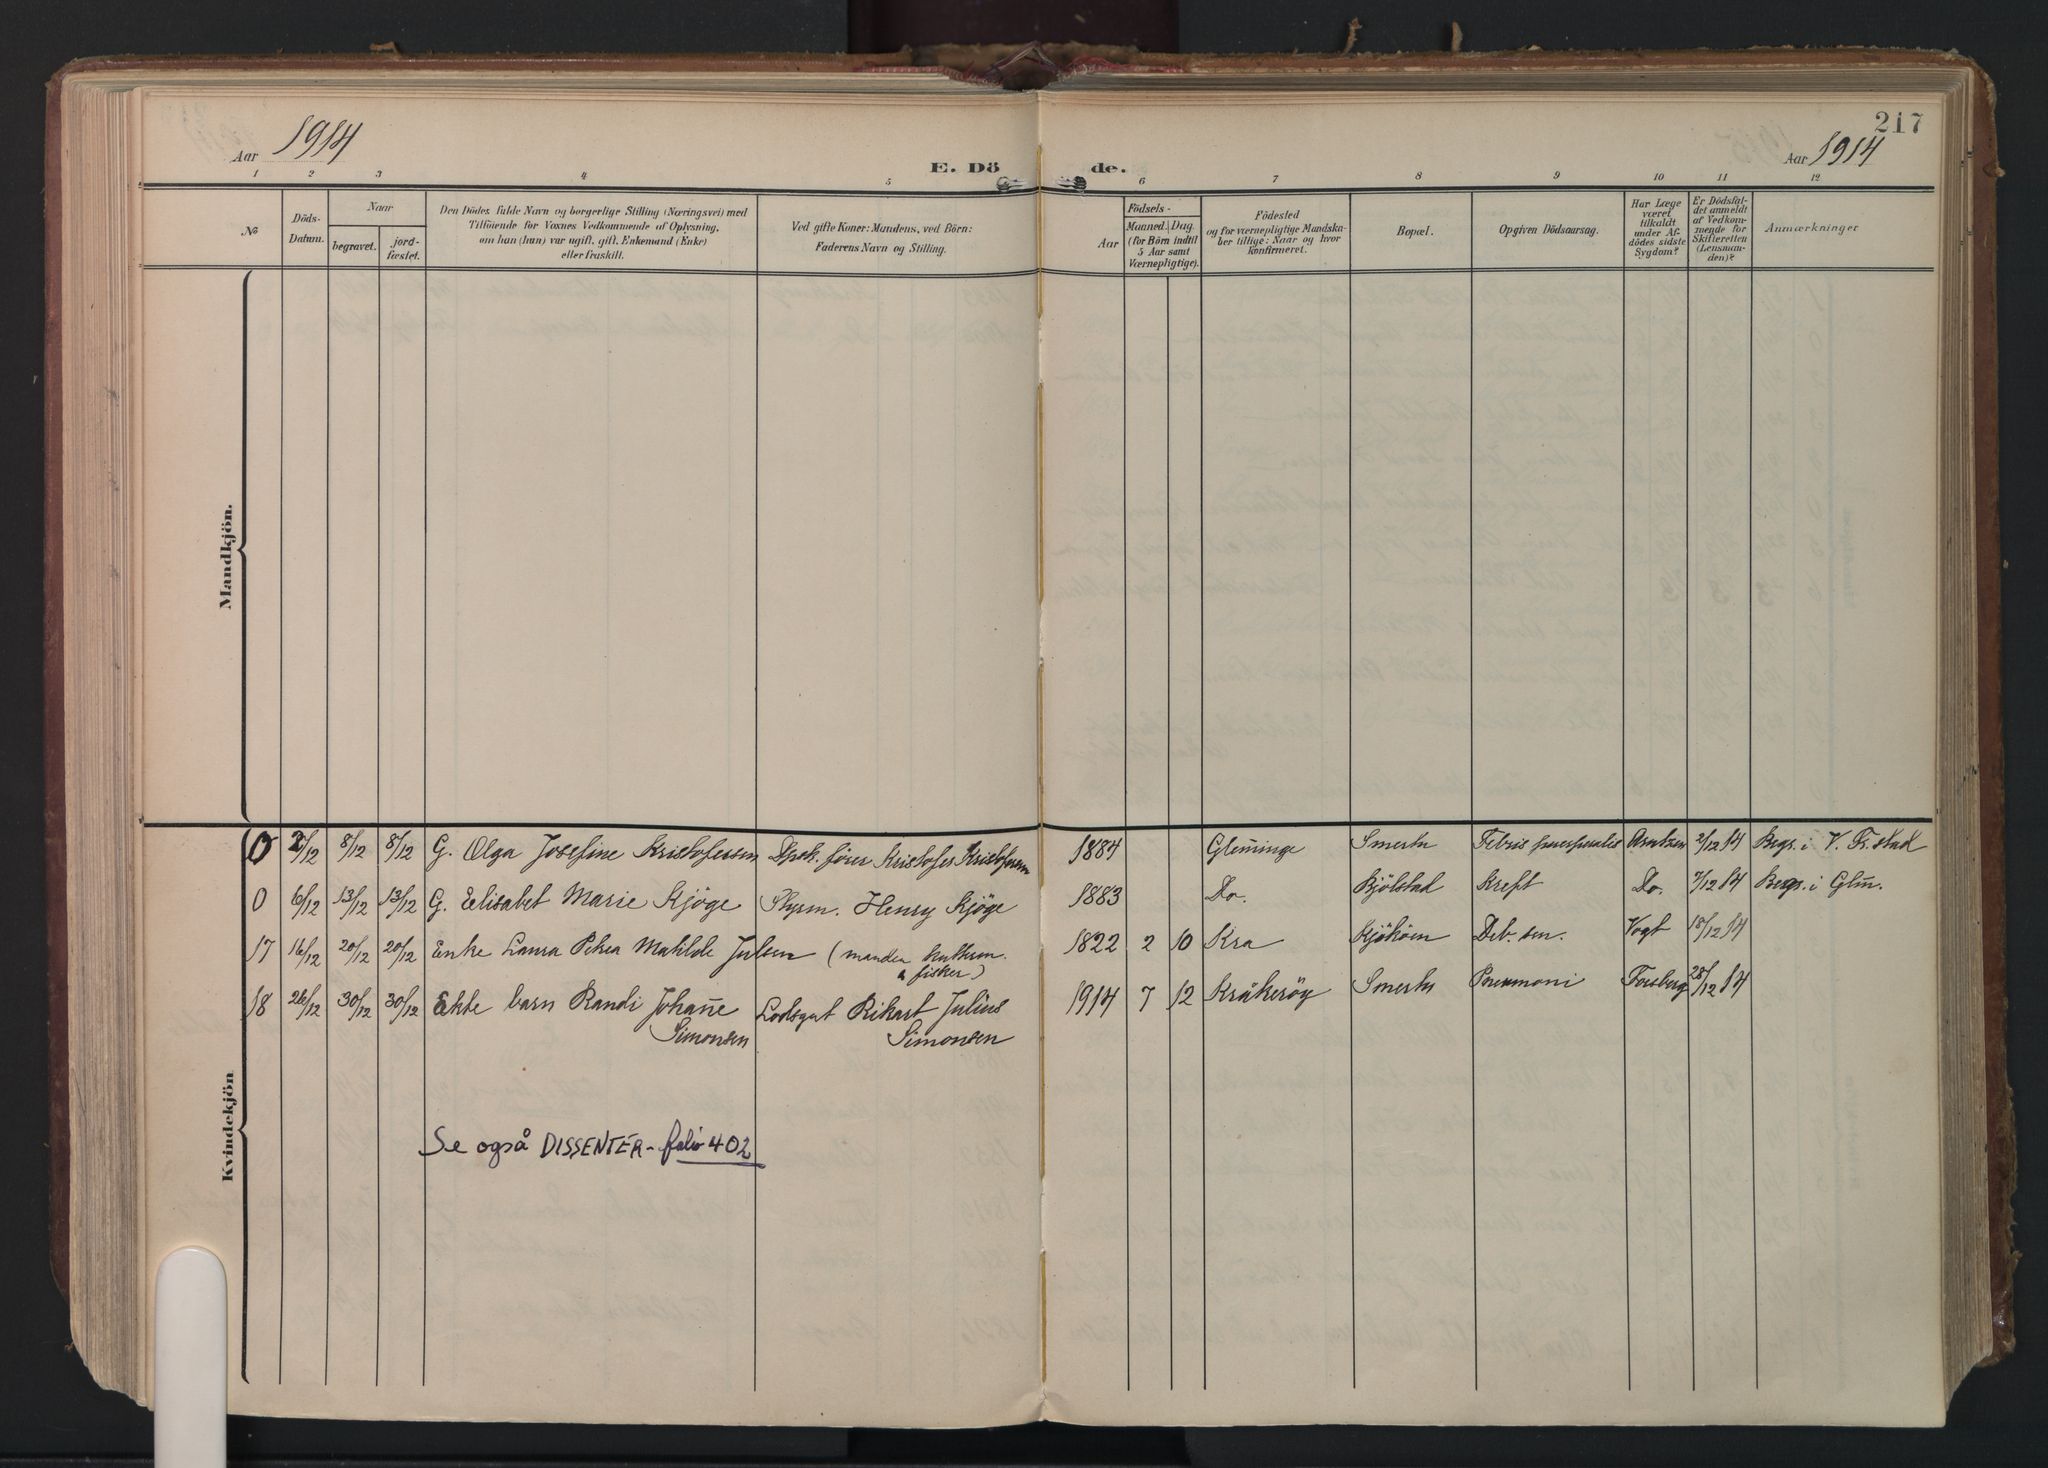 217
Aar 1914
Aar 1914
E. Dö de.
1 2 3 4 5 6 7 8 9 10 11 12
No
Döds-
Datum.
Naar
begravet.
jord-
fæstet.
Den Dödes fulde Navn og borgerlige Stilling (Næringsvei) med
Tilföiende for Voxnes Vedkommende af Oplysning,
om han (hun) var ugift, gift, Enkemand (Enke)
eller fraskilt.
Ved gifte Koner: Mandens, ved Börn:
Faderens Navn og Stilling.
Aar
Födsels-
Maaned. Dag.
(for Börn indtil
5 Aar samt
Værnepligtige).
Födested
og for værnepligtige Mandska-
ber tillige: Naar og hvor
konfirmeret.
Bopæl.
Opgiven Dödsaarsag.
Har Læge
været
tilkaldt
under Af-
dödes sidste
Sygdom?
Er Dödsfal-
det anmeldt
af Vedkom-
mende for
Skifteretten
(Lensman-
den)?
Anmærkninger
Mandkjön.
Kvindekjön
0 2/12 8/12 8/12 G. Olga Josefine Kristofersen Dpsk. förer Kristofer Kristofersen 1884 Glemminge Smertu Febris puerperalis 2/12 14 Begr. i V. Fr.stad
0 6/12 13/12 13/12 G. Elisabet Marie Kjöge Styrm. Henry Kjöge 1883 Do. Kjölstad Kreft Do. 7/12 14 Begr. i Glm.
17 16/12 20/12 20/12 Enke Laura Petrea Matilde Julsen (manden 1822 2 10 Kra Kjököen Deb. sen. Vogt 18/12 14
fisker)
18 26/12 30/12 30/12 Ekte barn Randi Johanne Lodsgut Rikart Julius 1914 7 12 Kråkeröy Smertu Pneumoni Forsberg 28/12 14
Simonsen Simonsen
Se også DISSENTER - folio 402